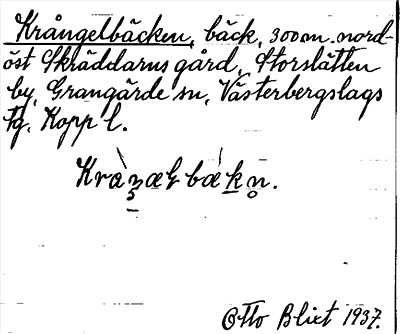 Krångelbäcken, bäck, 300 m. nord-
öst Skräddarns gård, Storslätten
by, Grangärde sn, Västerbergslags
tg. Kopp l.
Otto Blixt 1937.